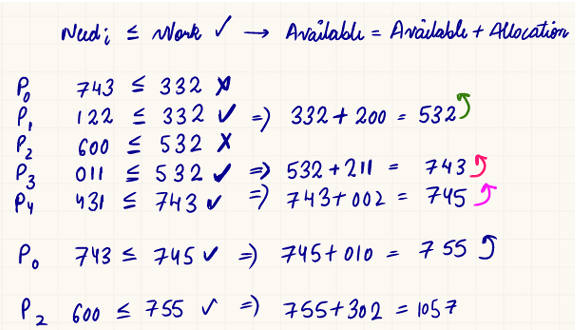 Needi ≤ Work ✓ → Available = Available + Allocation
P₀ 743 ≤ 332 ✗
P₁ 122 ≤ 332 ✓ => 332 + 200 = 532
P₂ 600 ≤ 532 ✗
P₃ 011 ≤ 532 ✓ => 532 + 211 = 743
P₄ 431 ≤ 743 ✓ => 743 + 002 = 745
P₀ 743 ≤ 745 ✓ => 745 + 010 = 755
P₂ 600 ≤ 755 ✓ => 755 + 302 = 1057